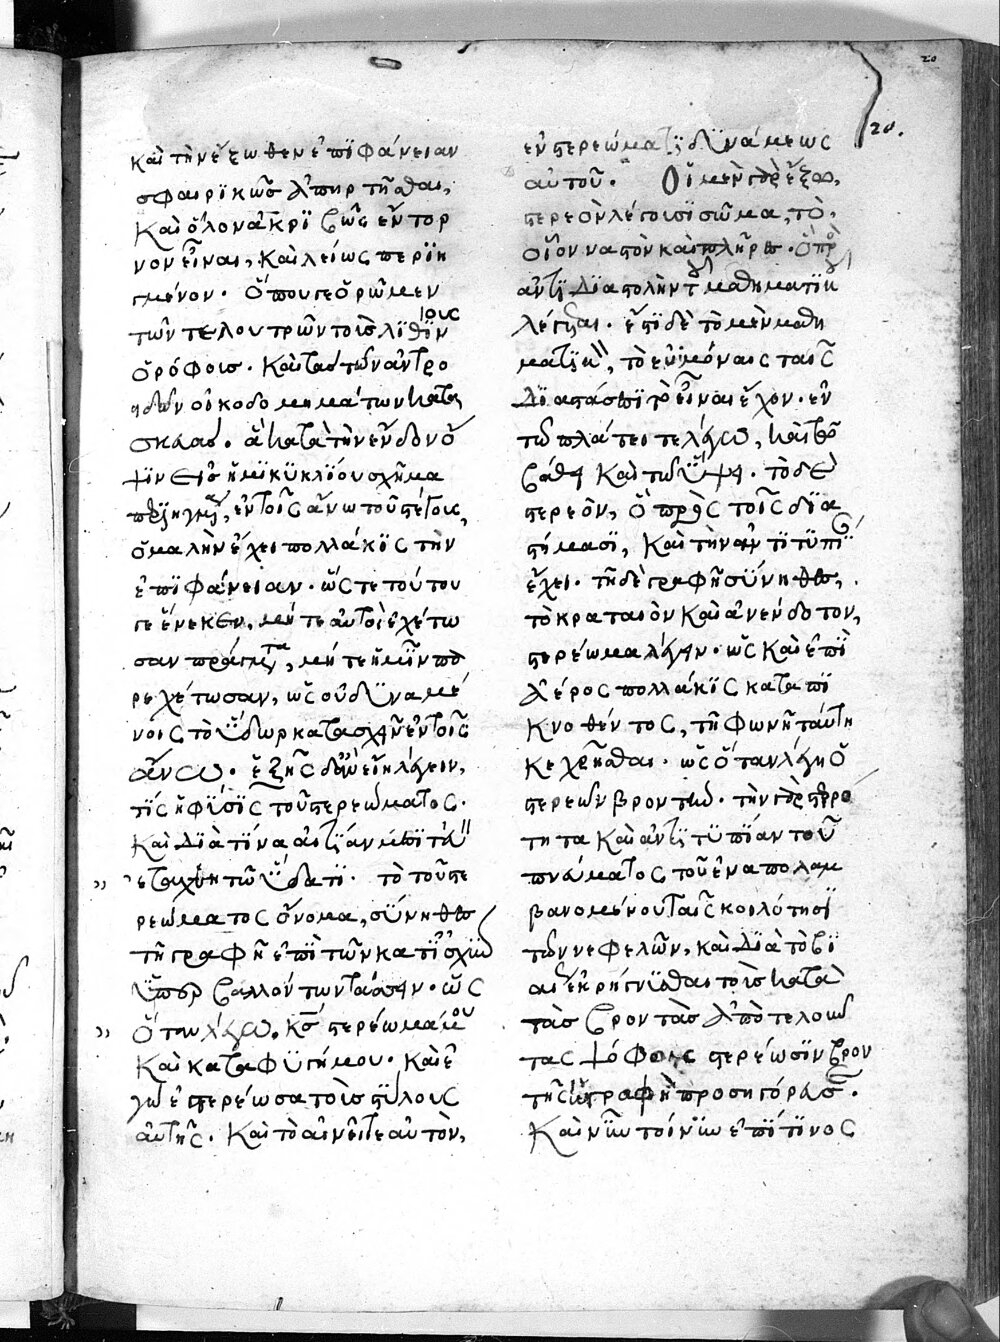 20
20.
καὶ τὴν ἔξωθεν ἐπϊφάνειαν
σφαιρϊκῶς ἀπηρτῆσθαι,
Καὶ ὅλον ἀκρϊβῶς ἔντορ
νον εἶναι, Καὶ λείως περϊη
γμένον. Ὅπου γε ὁρῶμεν
τῶν τε λουτρῶν τοῖς λϊθΐνοις
ὀρόφοις. Καὶ τῶν ἀντρο
ειδῶν οἰκοδομημάτων κατα
σκευαί. ἃ κατὰ τὴν ἔνδον ὄ
ψϊν εἰς ἡμϊκϋκλΐου σχῆμα
περϊηγμένα, ἐν τοῖς ἄνω τοῦ τέγους,
ὁμαλὴν ἔχει πολλάκϊς τὴν
ἐπϊφάνειαν. ὥστε τούτου
γε ἕνεκεν, μήτε αὐτοὶ ἐχέτω
σαν πράγματα, μήτε ἡμῖν πα
ρεχέτωσαν, ὡς οὐ δϋναμέ
νοις τὸ ὕδωρ κατασχεῖν ἐν τοῖς
ἄνω. ἑξῆς δ᾽ ἂν εἴη λέγειν,
τίς ἡ φύσϊς τοῦ στερεώματος.
Καὶ δϊὰ τίνα αἰτΐαν μέσον
ἐτάχθη τῶ ὕδατϊ. τὸ τοῦ στε
ρεώματος ὄνομα, σύνηθες
τῆ γραφῆ ἐπὶ τῶν κατ᾽ ἰσχϋν
ὑπερβαλλόντων τάσσειν. ὡς
ὅταν λέγω, Κς στερέωμά μου
Καὶ καταφϋγή μου. Καὶ ἐ
γὼ ἐστερέωσα τοὺς στύλους
αὐτῆς. Καὶ τὸ αἰνεῖτε αὐτὸν,
ἐν στερεώματϊ δϋνάμεως
αὐτοῦ. Οἱ μὲν γὰρ ἔξω,
στερεὸν λέγουσϊ σῶμα, τὸ
οἷον ναστὸν καὶ πλῆρες. Ὅπερ
ἀντιδϊαστολὴν τοῦ μαθηματικοῦ
λέγεται. ἔστϊ δὲ τὸ μὲν μαθη
ματϊκὸν, τὸ ἐν μόναις ταῖς
δϊαστάσεσϊ τὸ εἶναι ἔχον. ἐν
τῶ πλάτει λέγω, καὶ τῶ
βάθει Καὶ τῶ ὕψει. τὸ δὲ
στερεὸν, ὃ πρὸς τοῖς δϊα
στήμασϊ, Καὶ τὴν ἀντιτυπΐαν
ἔχει. τῆ δὲ γραφῆ σύνηθες,
τὸ κραταιὸν Καὶ ἀνένδοτον,
στερέωμα λέγειν. ὡς Καὶ ἐπὶ
ἀέρος πολλάκϊς καταπϋ
κνωθέντος, τῆ φωνῆ ταύτη
κεχρῆσθαι. ὡς ὅταν λέγη ὁ
στερεῶν βροντήν. τὴν γὰρ στερρό
τητα Καὶ ἀντιτϋπΐαν τοῦ
πνεύματος τοῦ ἐναπολαμ
βανομένου ταῖς κοιλότησϊ
τῶν νεφελῶν, καὶ δϊὰ τὸ βϊ
αίως ἐκρήγνϋσθαι τοὺς κατὰ
τὰς βροντὰς ἀποτελοῦν
τας ψόφους στερέωσϊν βρον
τῆς ἡ γραφὴ προσηγόρευσεν.
Καὶ νῦν τοίνϋν ἐπΐ τΐνος